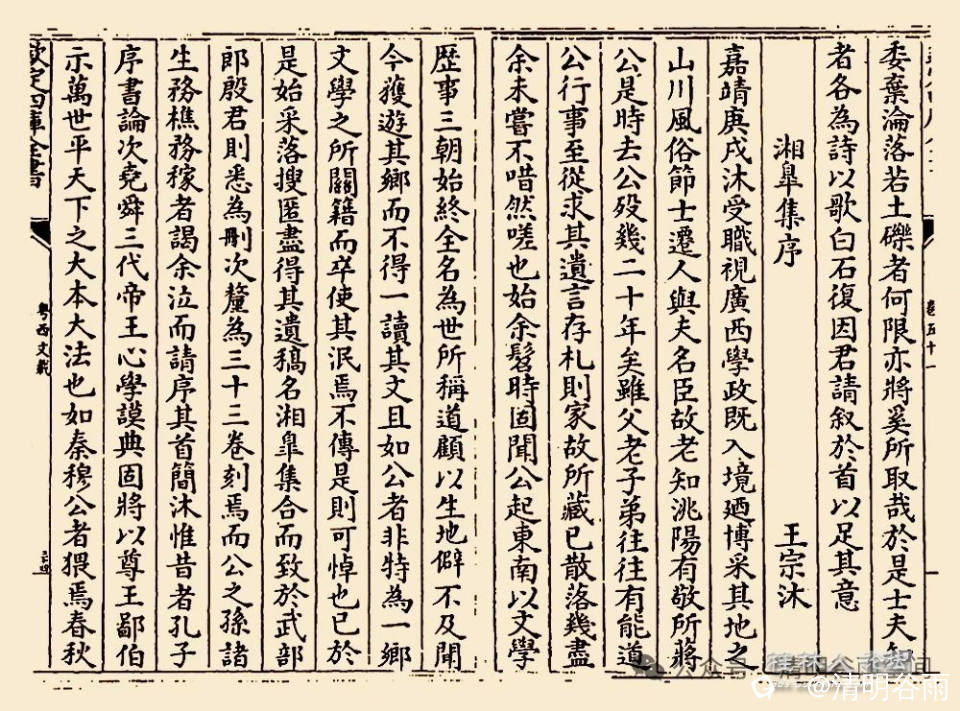 委棄淪落若土礫者何限亦將奚所取哉於是士夫知
者各為詩以歌白石復因君請叙於首以足其意
湘臯集序 王宗沐
嘉靖庚戌沐受職視廣西學政既入境廼博采其地之
山川風俗節士遷人與夫名臣故老知洮陽有敬所蔣
公是時去公歿幾二十年矣雖父老子弟往往有能道
公行事至從求其遺言存札則家故所藏已散落幾盡
余未嘗不唶然嗟也始余髫時固聞公起東南以文學
歷事三朝始終全名為世所稱道顧以生地僻不及聞
今獲遊其鄉而不得一讀其文且如公者非特為一鄉
文學之所關籍而卒使其泯焉不傳是則可悼也已於
是始采落搜匿盡得其遺稿名湘臯集合而致於武部
郎殷君則悉為刪次釐為三十三卷刻焉而公之孫諸
生務樵務稼者謁余泣而請序其首簡沐惟昔者孔子
序書論次堯舜三代帝王心學謨典固將以尊王鄙伯
示萬世平天下之大本大法也如秦穆公者猥焉春秋
欽定四庫全書
粤西文載
公众号
@清明谷雨